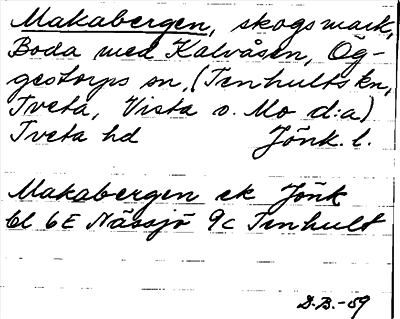 Makabergen, skogsmark,
Boda med Kalvåsen, Ög-
gestorps sn, (Tenhults kn,
Tveta, Vista o. Mo d:a)
Tveta hd Jönk. l.
Makabergen ek Jönk
bl 6E Nässjö 9c Tenhult
D.B.-59